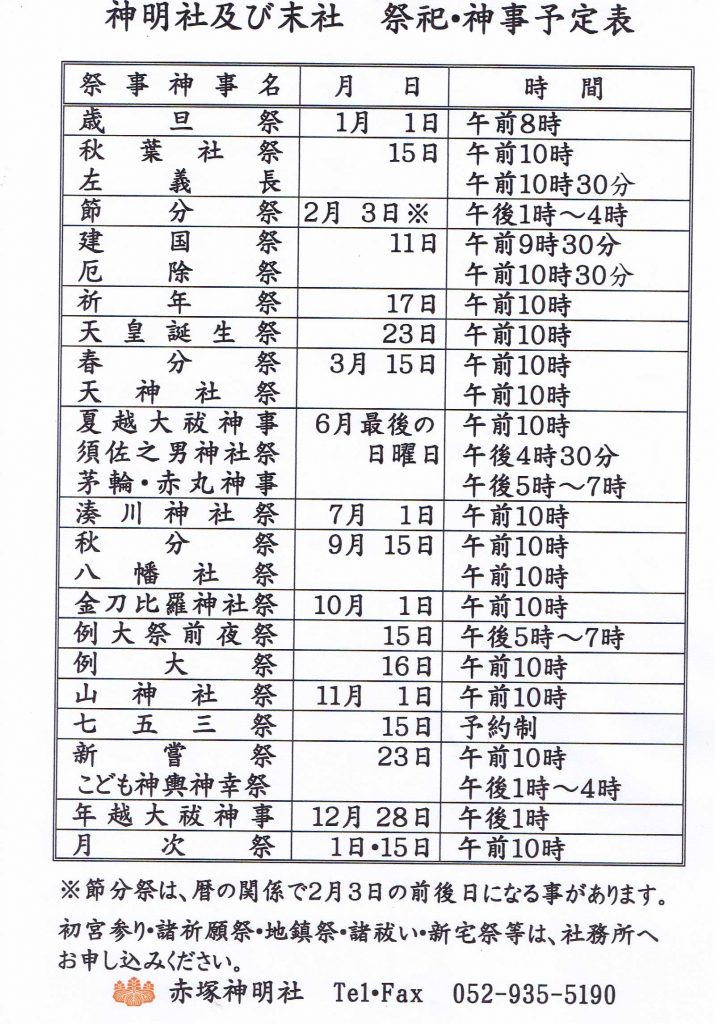 神明社及び末社　祭祀・神事予定表
祭事神事名　月　日　時　間
歳旦祭　1月　1日　午前8時
秋葉社祭　15日　午前10時
左義長　午前10時30分
節分祭　2月　3日※　午後1時～4時
建国祭　11日　午前9時30分
厄除祭　午前10時30分
祈年祭　17日　午前10時
天皇誕生祭　23日　午前10時
春分祭　3月　15日　午前10時
天神社祭　午前10時
夏越大祓神事　6月最後の　午前10時
須佐之男神社祭　日曜日　午後4時30分
茅輪・赤丸神事　午後5時～7時
湊川神社祭　7月　1日　午前10時
秋分祭　9月　15日　午前10時
八幡社祭　午前10時
金刀比羅神社祭　10月　1日　午前10時
例大祭前夜祭　15日　午後5時～7時
例大祭　16日　午前10時
山神社祭　11月　1日　午前10時
七五三祭　15日　予約制
新嘗祭　23日　午前10時
こども神輿神幸祭　午後1時～4時
年越大祓神事　12月　28日　午後1時
月次祭　1日・15日　午前10時
※節分祭は、暦の関係で2月3日の前後日になる事があります。
初宮参り・諸祈願祭・地鎮祭・諸祓い・新宅祭等は、社務所へ
お申し込みください。
赤塚神明社　Tel・Fax　052-935-5190